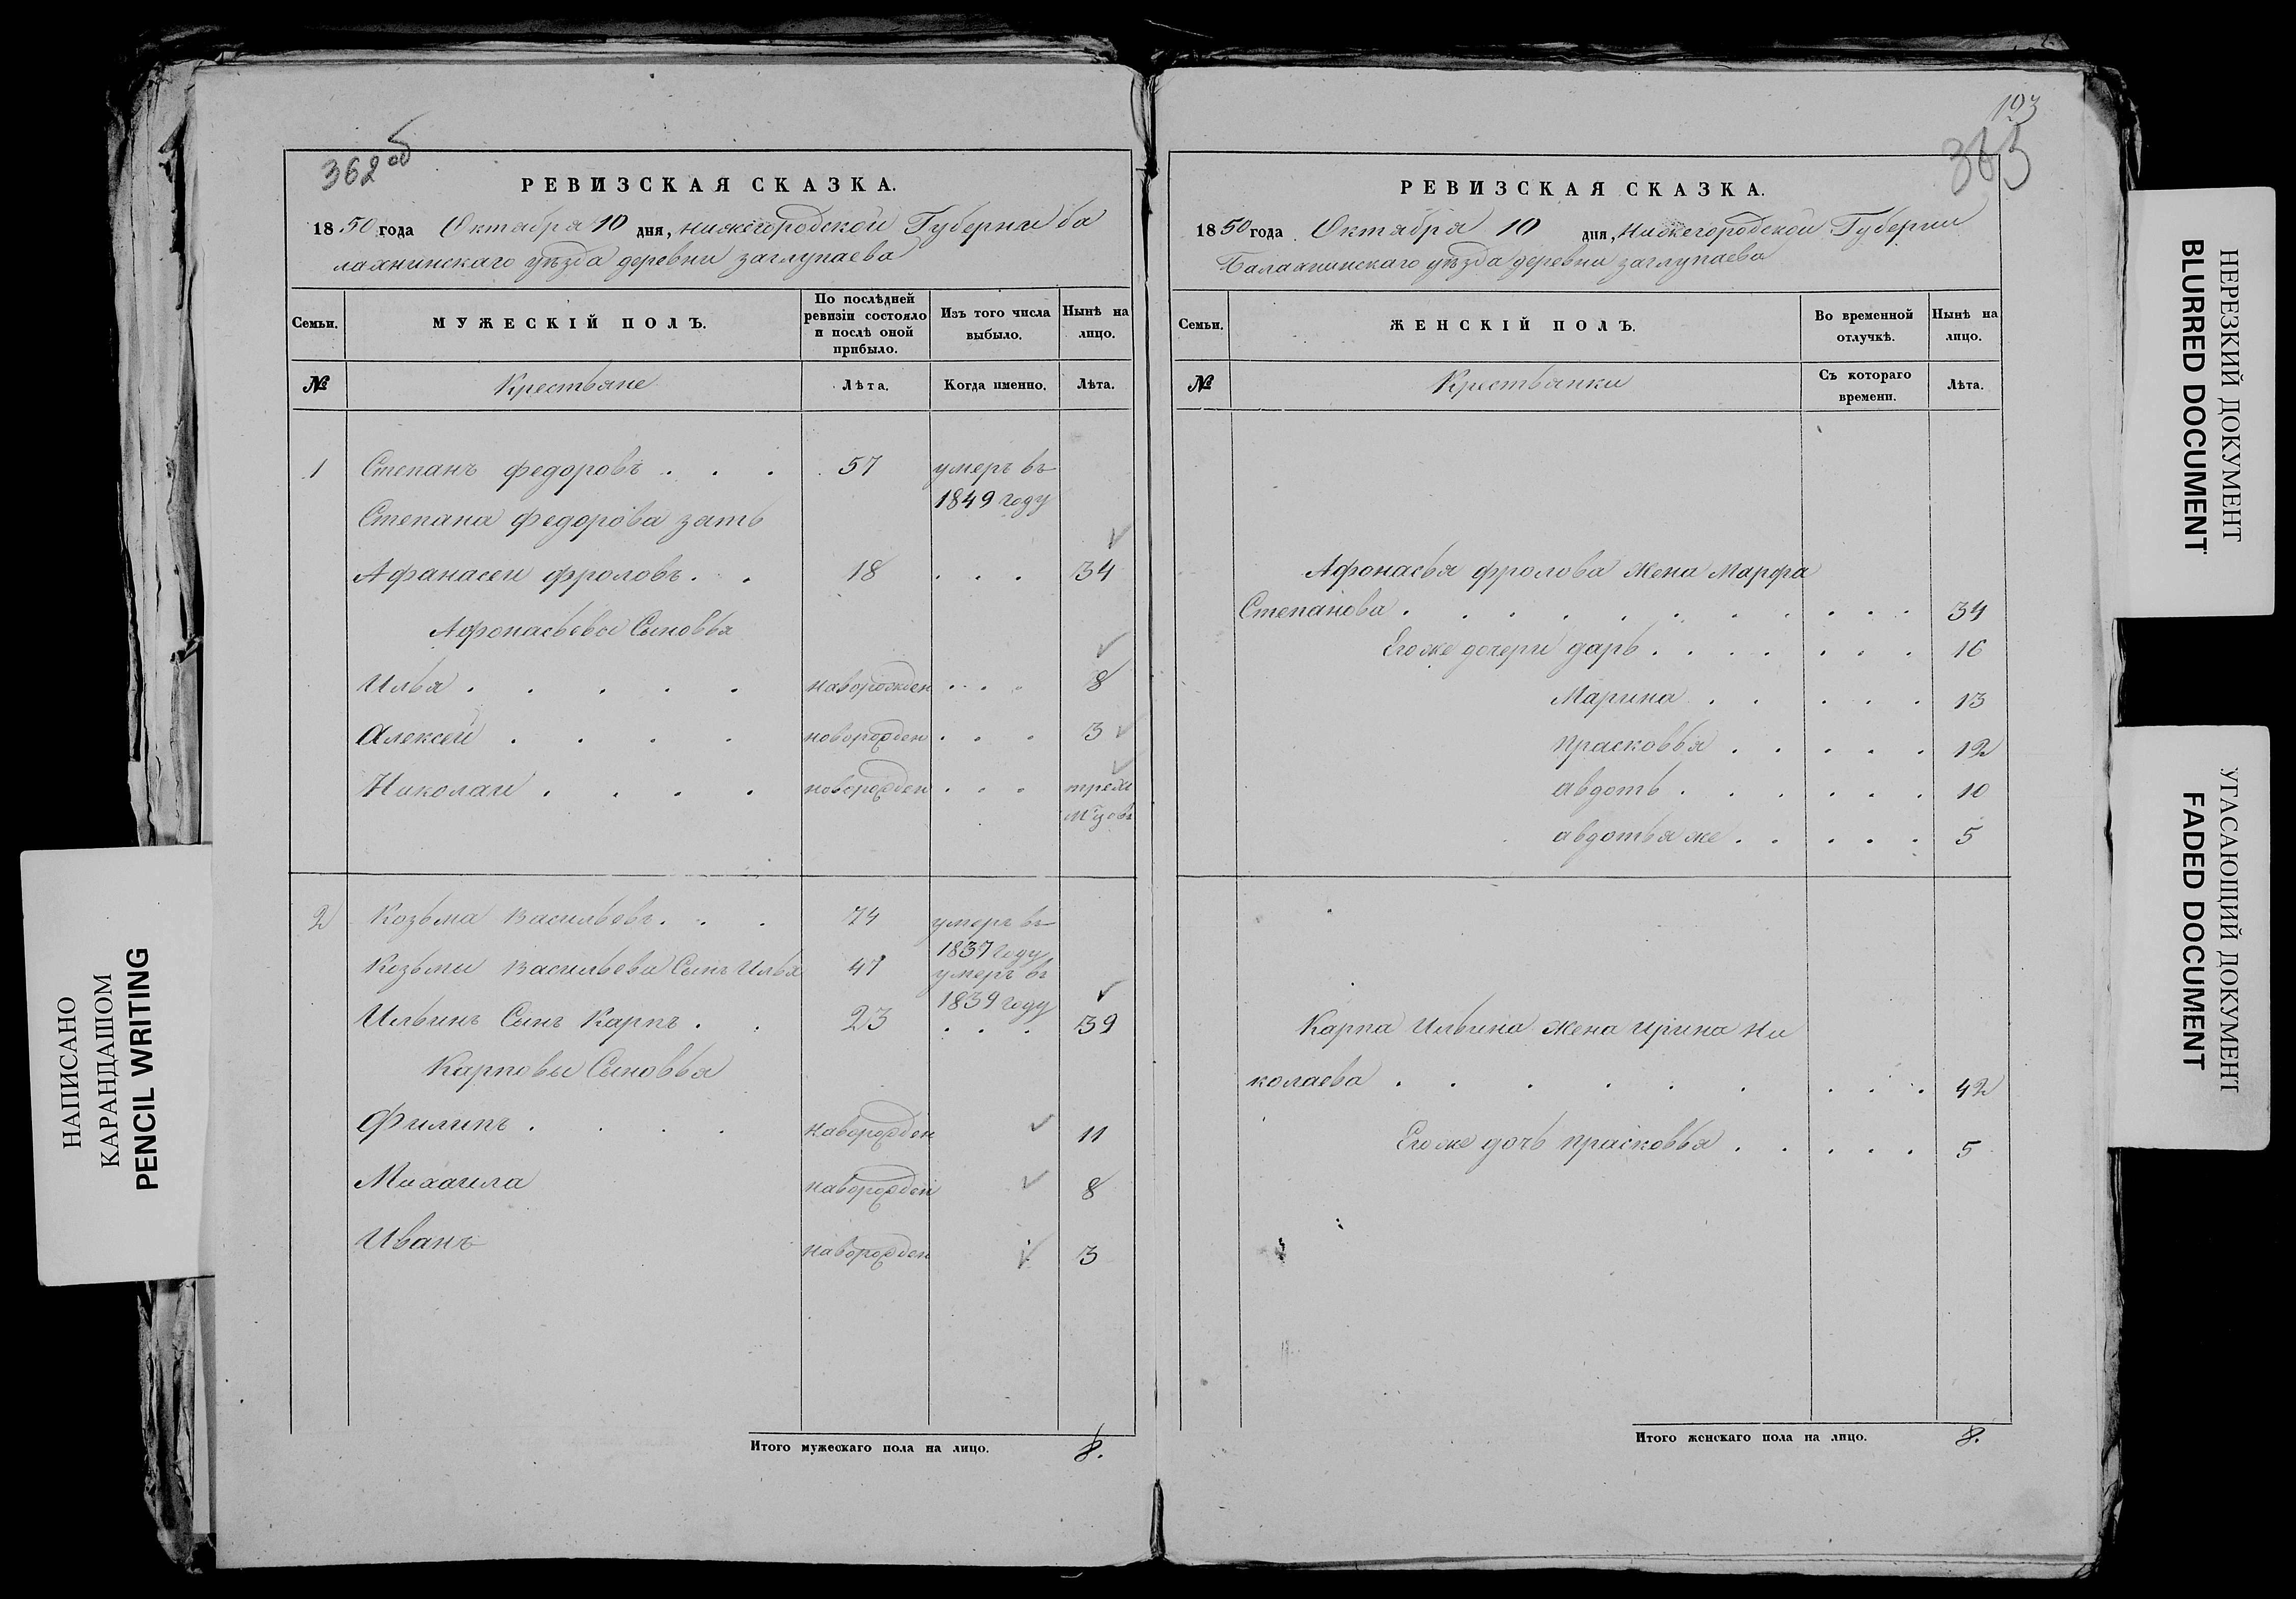 362 об
РЕВИЗСКАЯ СКАЗКА.
1850 года Октября 10 дня, нижегородской Губернии ба
лахнинскаго уѣзда деревни заглупаева
Семьи.
МУЖЕСКІЙ ПОЛЪ.
По послѣдней ревизіи состояло и послѣ оной прибыло.
Изъ того числа выбыло.
Нынѣ на лицо.
№
Крестьяне
Лѣта.
Когда именно.
Лѣта.
1 Степанъ федоровъ . . . 57 умеръ въ
1849 году
Степана федорова зять
Афанасеи фроловъ . . 18 . . . 34
Афонасьевы Сыновья
Илья . . . . . наворожден . . . 8
Алексей . . . . новорожден . . . 3
Николаи . . . . новорожден . . . трехъ
м҃цовъ
2 Козьма васильевъ . . . 74 умеръ въ
1837 году
Козьмы васильева Сынъ Илья 47 умеръ въ
1839 году
Ильинъ Сынъ Карпъ . . 23 . . . 39
Карповы Сыновья
Филипъ . . . . наворожден 11
Михаила наворожден 8
Иванъ наворожден 3
Итого мужескаго пола на лицо. 8.
193
363
РЕВИЗСКАЯ СКАЗКА.
1850 года Октября 10 дня, Нижегородской Губернии
Балахнинскаго уѣзда деревни заглупаева
Семьи.
ЖЕНСКІЙ ПОЛЪ.
Во временной отлучкѣ.
Нынѣ на лицо.
№
Крестьянки
Съ котораго времени.
Лѣта.
Афонасья фролова жена Марфа
Степанова . . . . . . . . . . 34
Его же дочери дарь . . . . . . . 16
Марина . . . . . 13
прасковья . . . . . 12
авдоть . . . . . . 10
авдотья же . . . . . 5
Карпа Ильина жена ирина Ни
колаева . . . . . . . . . 42
Его же дочь прасковья . . . . . 5
Итого женскаго пола на лицо. 8.
НАПИСАНО
КАРАНДАШОМ
PENCIL WRITING
НЕРЕЗКИЙ ДОКУМЕНТ
BLURRED DOCUMENT
УГАСАЮЩИЙ ДОКУМЕНТ
FADED DOCUMENT